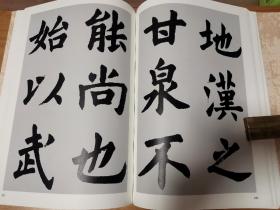 地漢之
甘泉不
能尚也
始以武